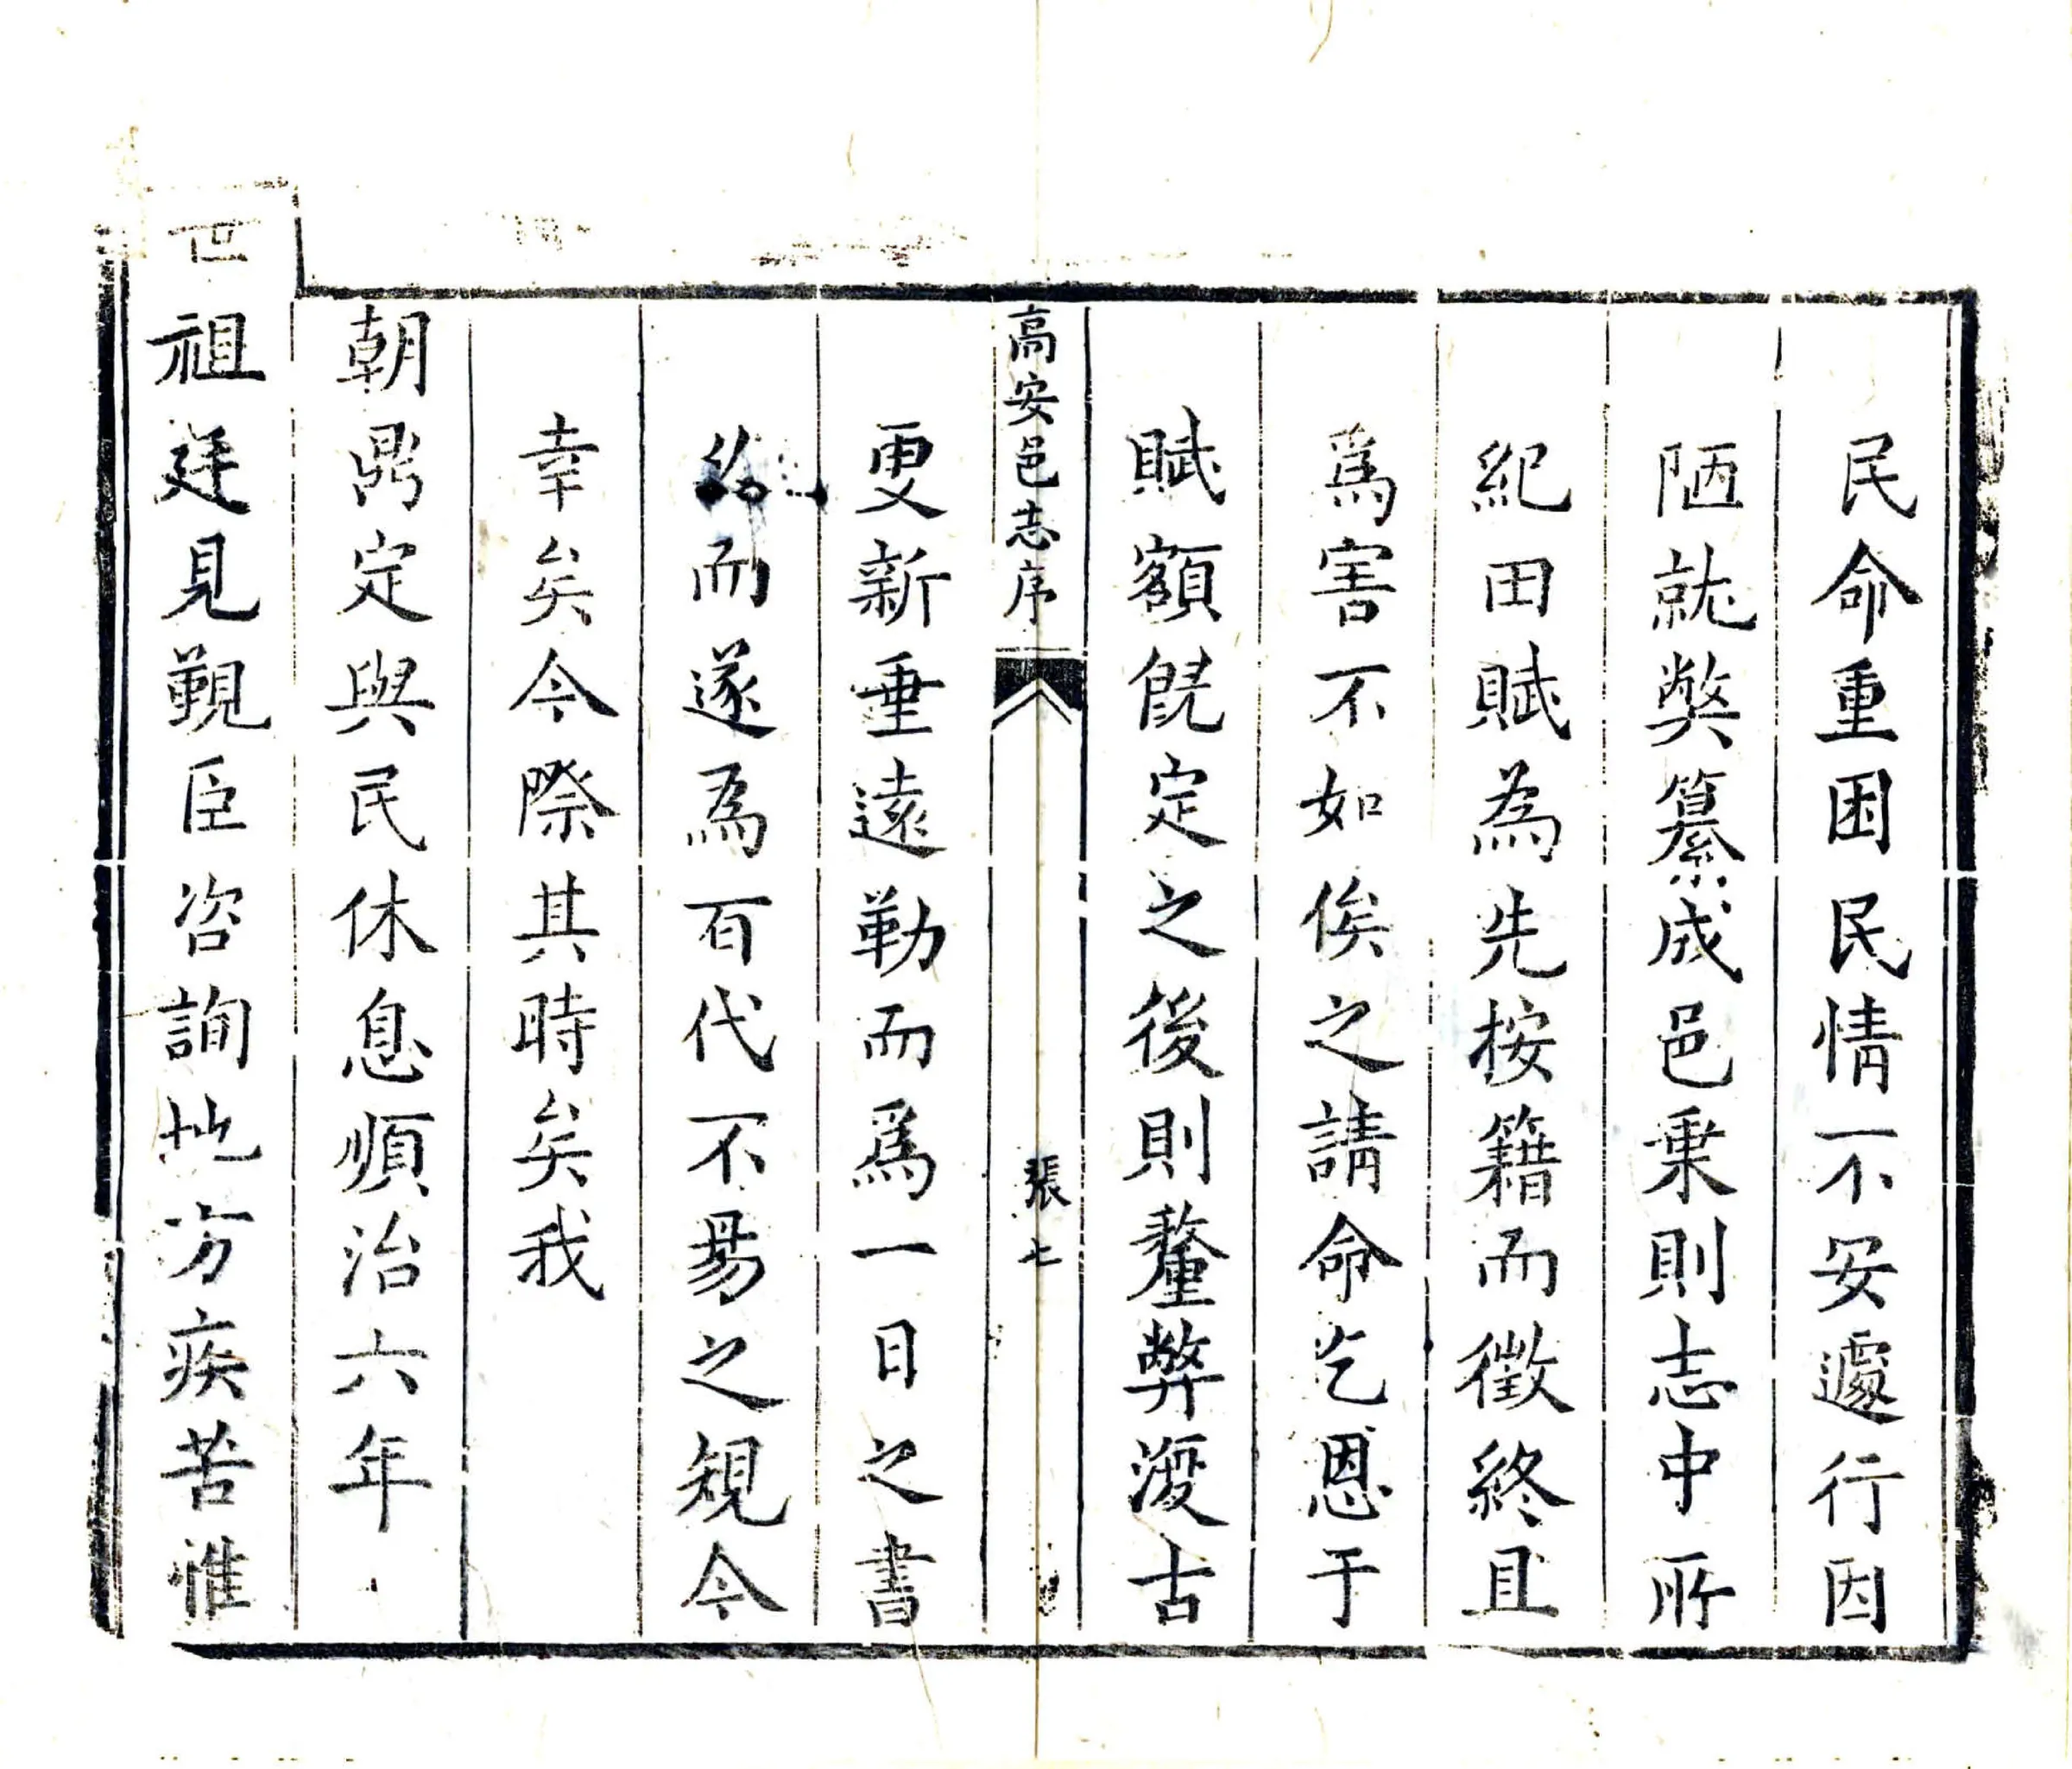 民命重困民情一不安遽行因
陋就獘纂成邑乗則志中所
紀田賦為先按籍而徵終且
爲害不如俟之請命乞恩于
賦額旣定之後則釐弊復古
高安邑志序
張七
更新垂遠勒而爲一日之書
而遂爲百代不易之規今
幸矣今際其時矣我
朝鼎定與民休息順治六年
世祖廷見覲臣咨詢地方疾苦惟